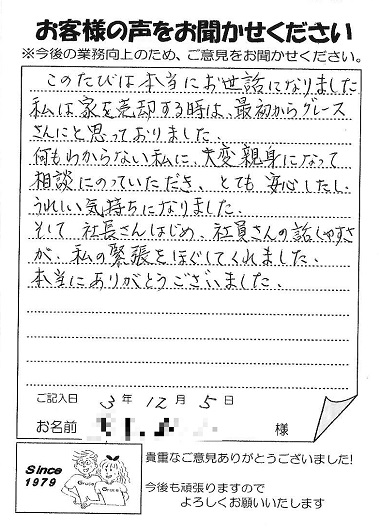 お客様の声をお聞かせください
※今後の業務向上のため、ご意見をお聞かせください。
このたびは本当にお世話になりました
私は家を売却する時は、最初からグレース
さんにと思っておりました、
何もわからない私に、大変親身になって
相談にのっていただき、とても安心したし、
うれしい気持ちになりました、
そして社長さんはじめ、社員さんの話しやすさ
が、私の緊張をほぐしてくれました、
本当にありがとうございました、
ご記入日 3年 12月 5日
お名前 様
Since
1979
貴重なご意見ありがとうございました!
今後も頑張りますので
よろしくお願いいたします